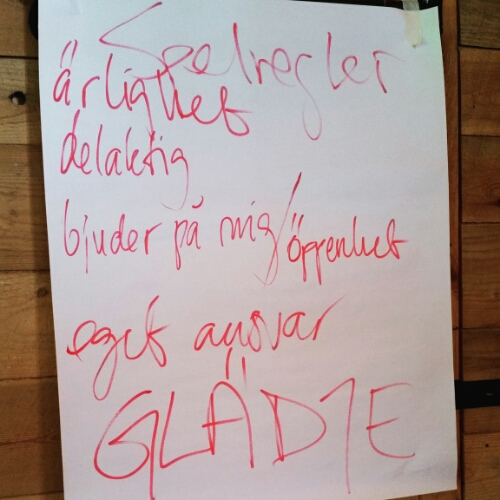 Spelregler
ärlighet
delaktig
bjuder på mig/öppenhet
eget ansvar
GLÄDJE